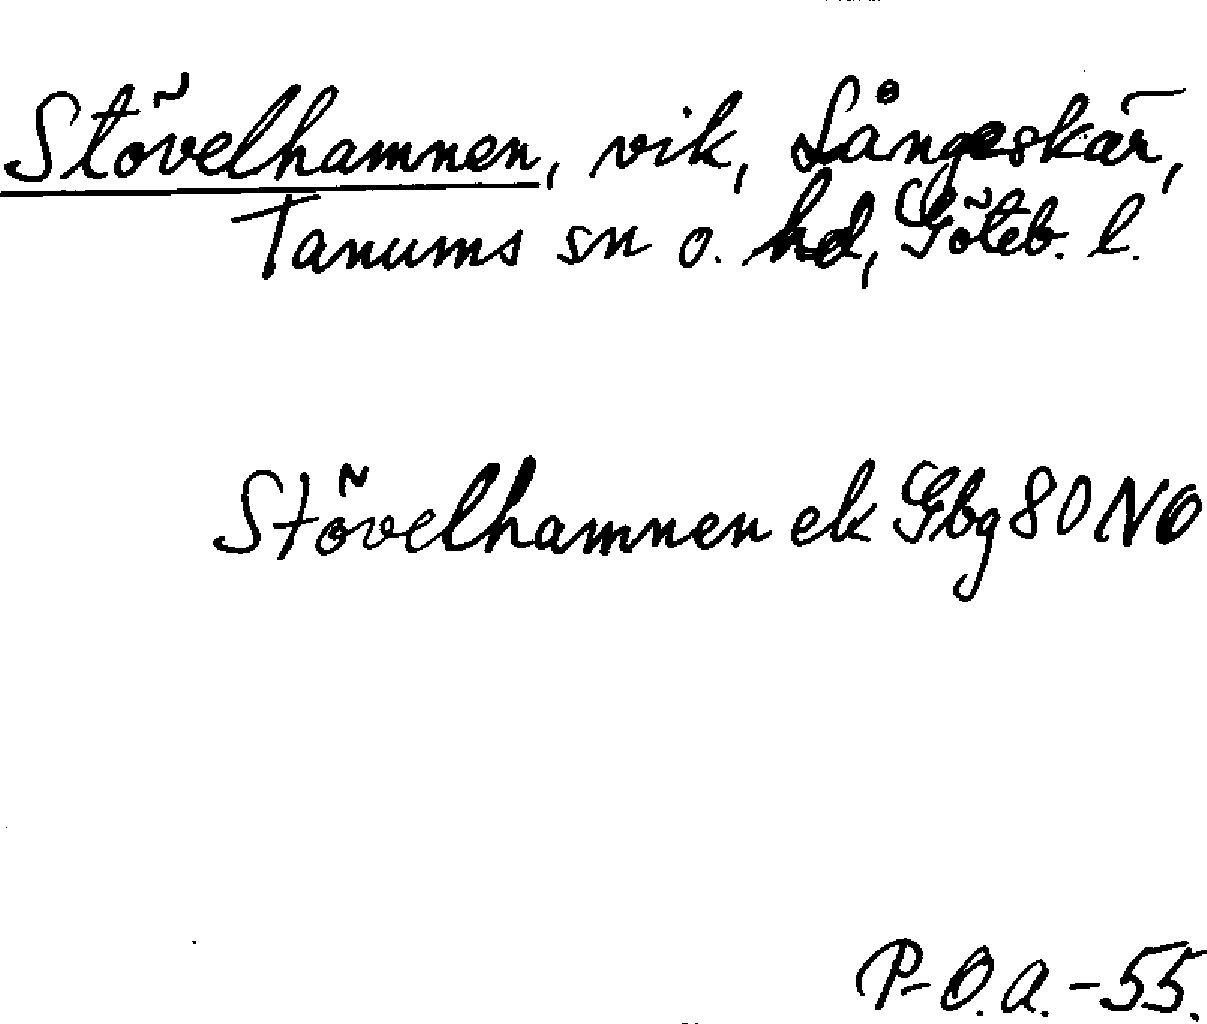 Stövelhamnen, vik, Långeskär,
Tanums sn o. hd, Göteb. l.
Stövelhamnen ek Gbg 80 NO
P-O.a.-55.